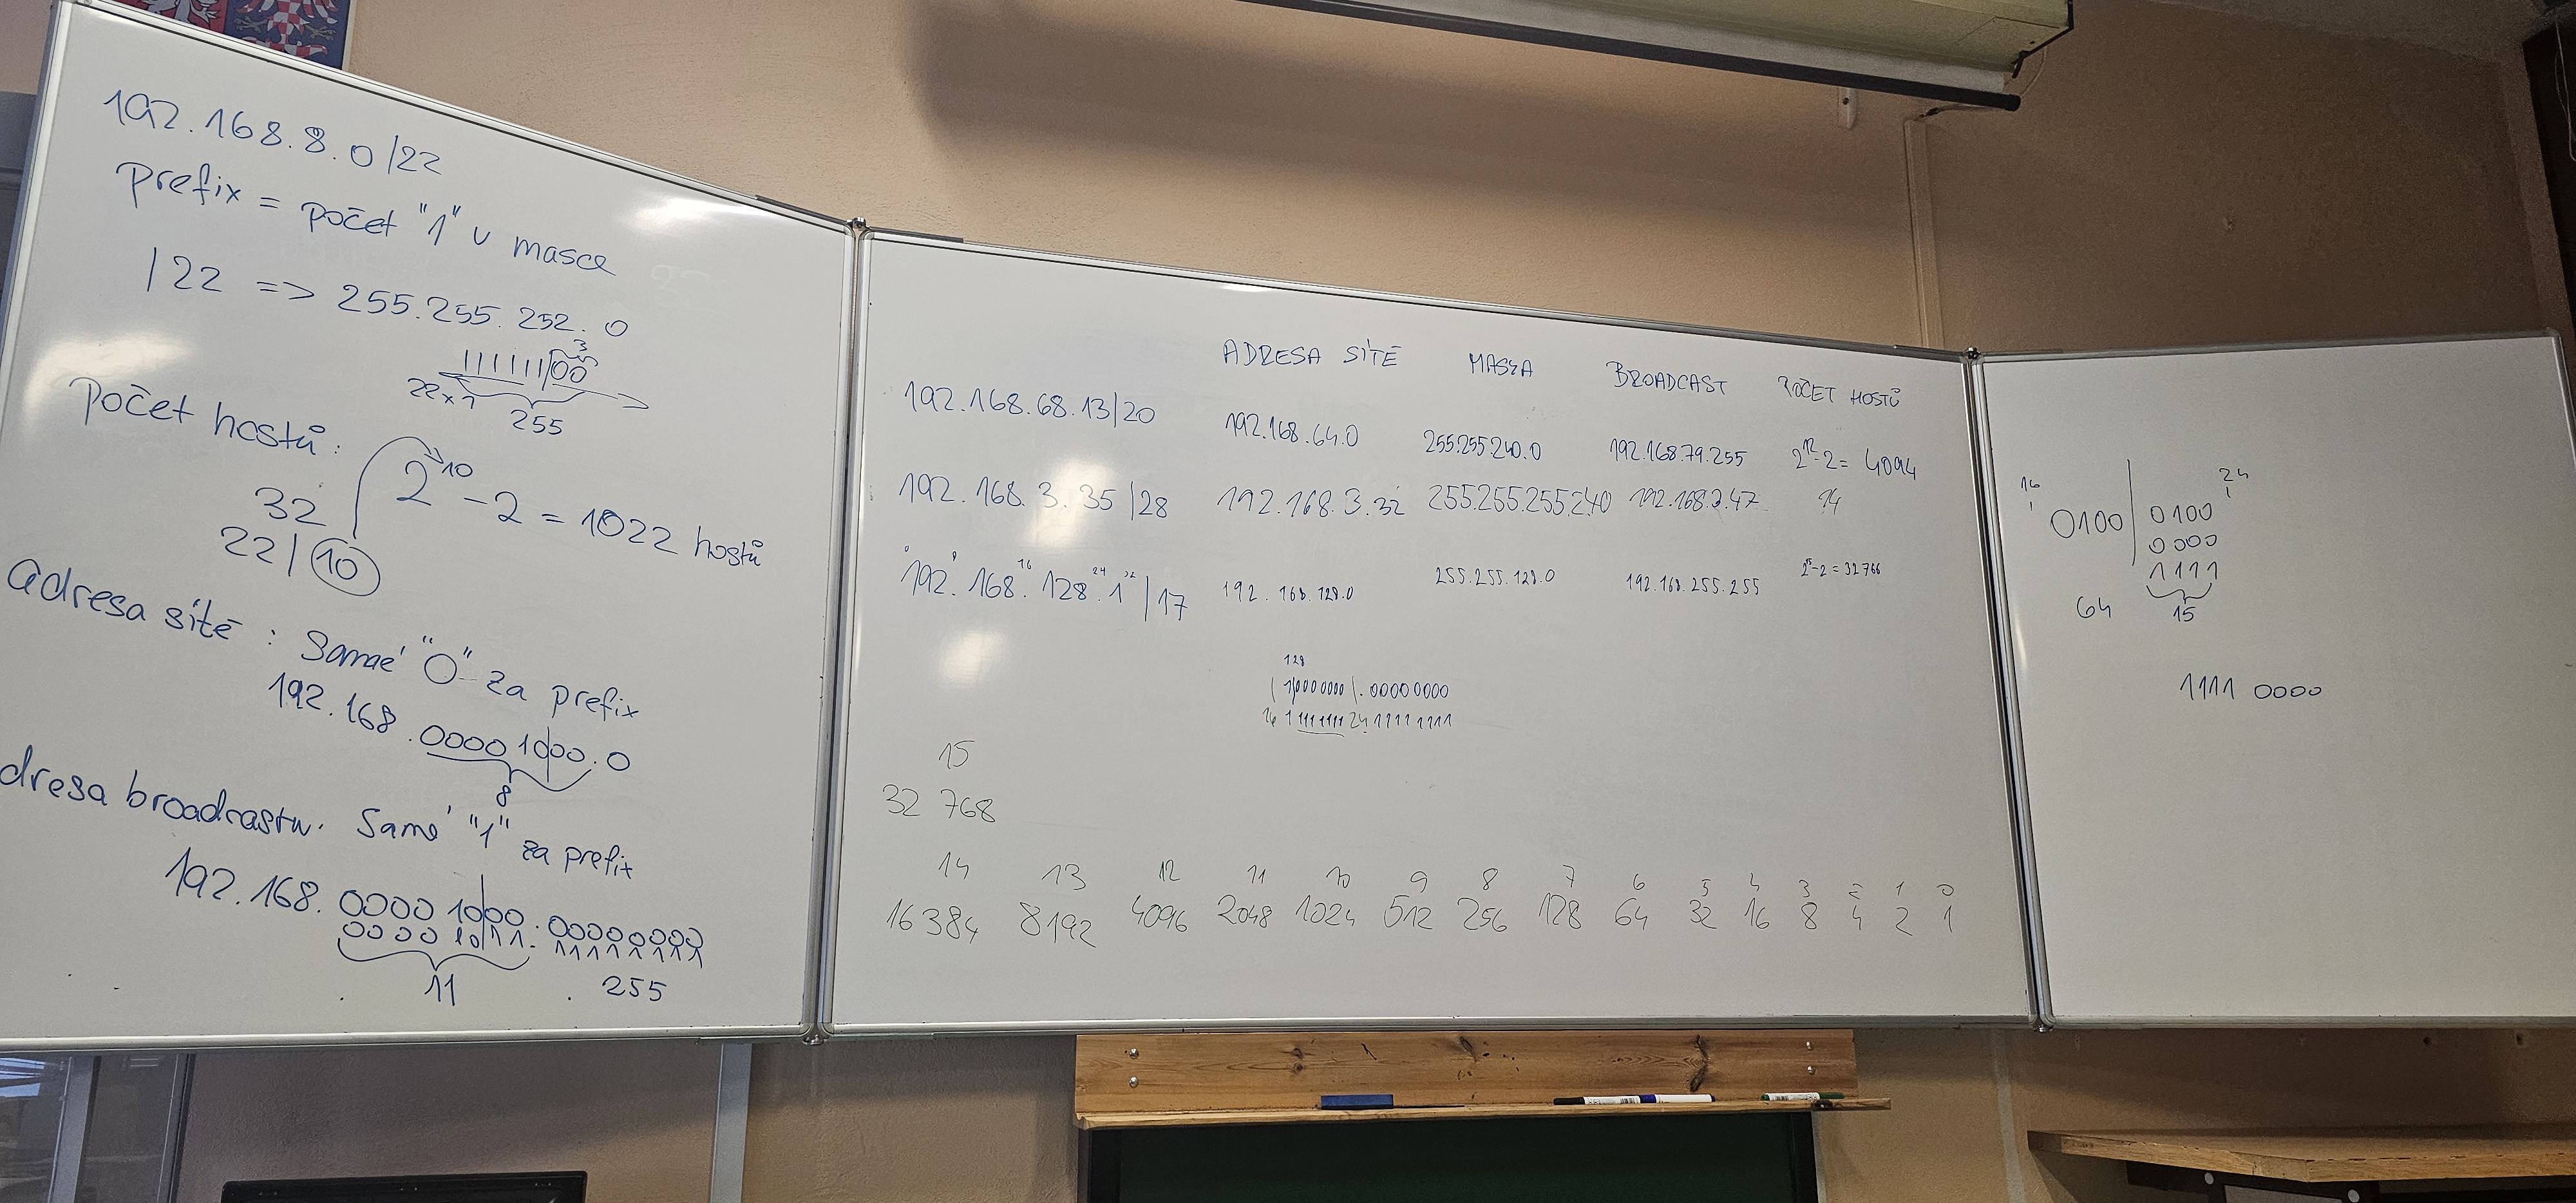 192.168.8.0/22
prefix = počet "1" v masce
/22 => 255.255.252.0
3
111111|00
22x1
255
počet hostů:
2^10 - 2 = 1022 hostů
32
22/10
adresa sítě: samé "0" za prefix
192.168.0000 10|00.0
8
dresa broadcastu. samé "1" za prefix
192.168.0000 10|00.00000000
0000 10|11.11111111
11 . 255
ADRESA SÍTĚ MASKA BROADCAST POČET HOSTŮ
192.168.68.13/20 192.168.64.0 255.255.240.0 192.168.79.255 2^12-2= 4094
192.168.3.35/28 192.168.3.32 255.255.255.240 192.168.3.47 14
0 8 16 24 32
192.168.128.1/17 192.168.128.0 255.255.128.0 192.168.255.255 2^15-2=32766
128
|1|0000000|.00000000
16 1 1111111 24 11111111
15
32 768
14 13 12 11 10 9 8 7 6 5 4 3 2 1 0
16384 8192 4096 2048 1024 512 256 128 64 32 16 8 4 2 1
16 24
0100 | 0100
0000
1111
64 15
1111 0000